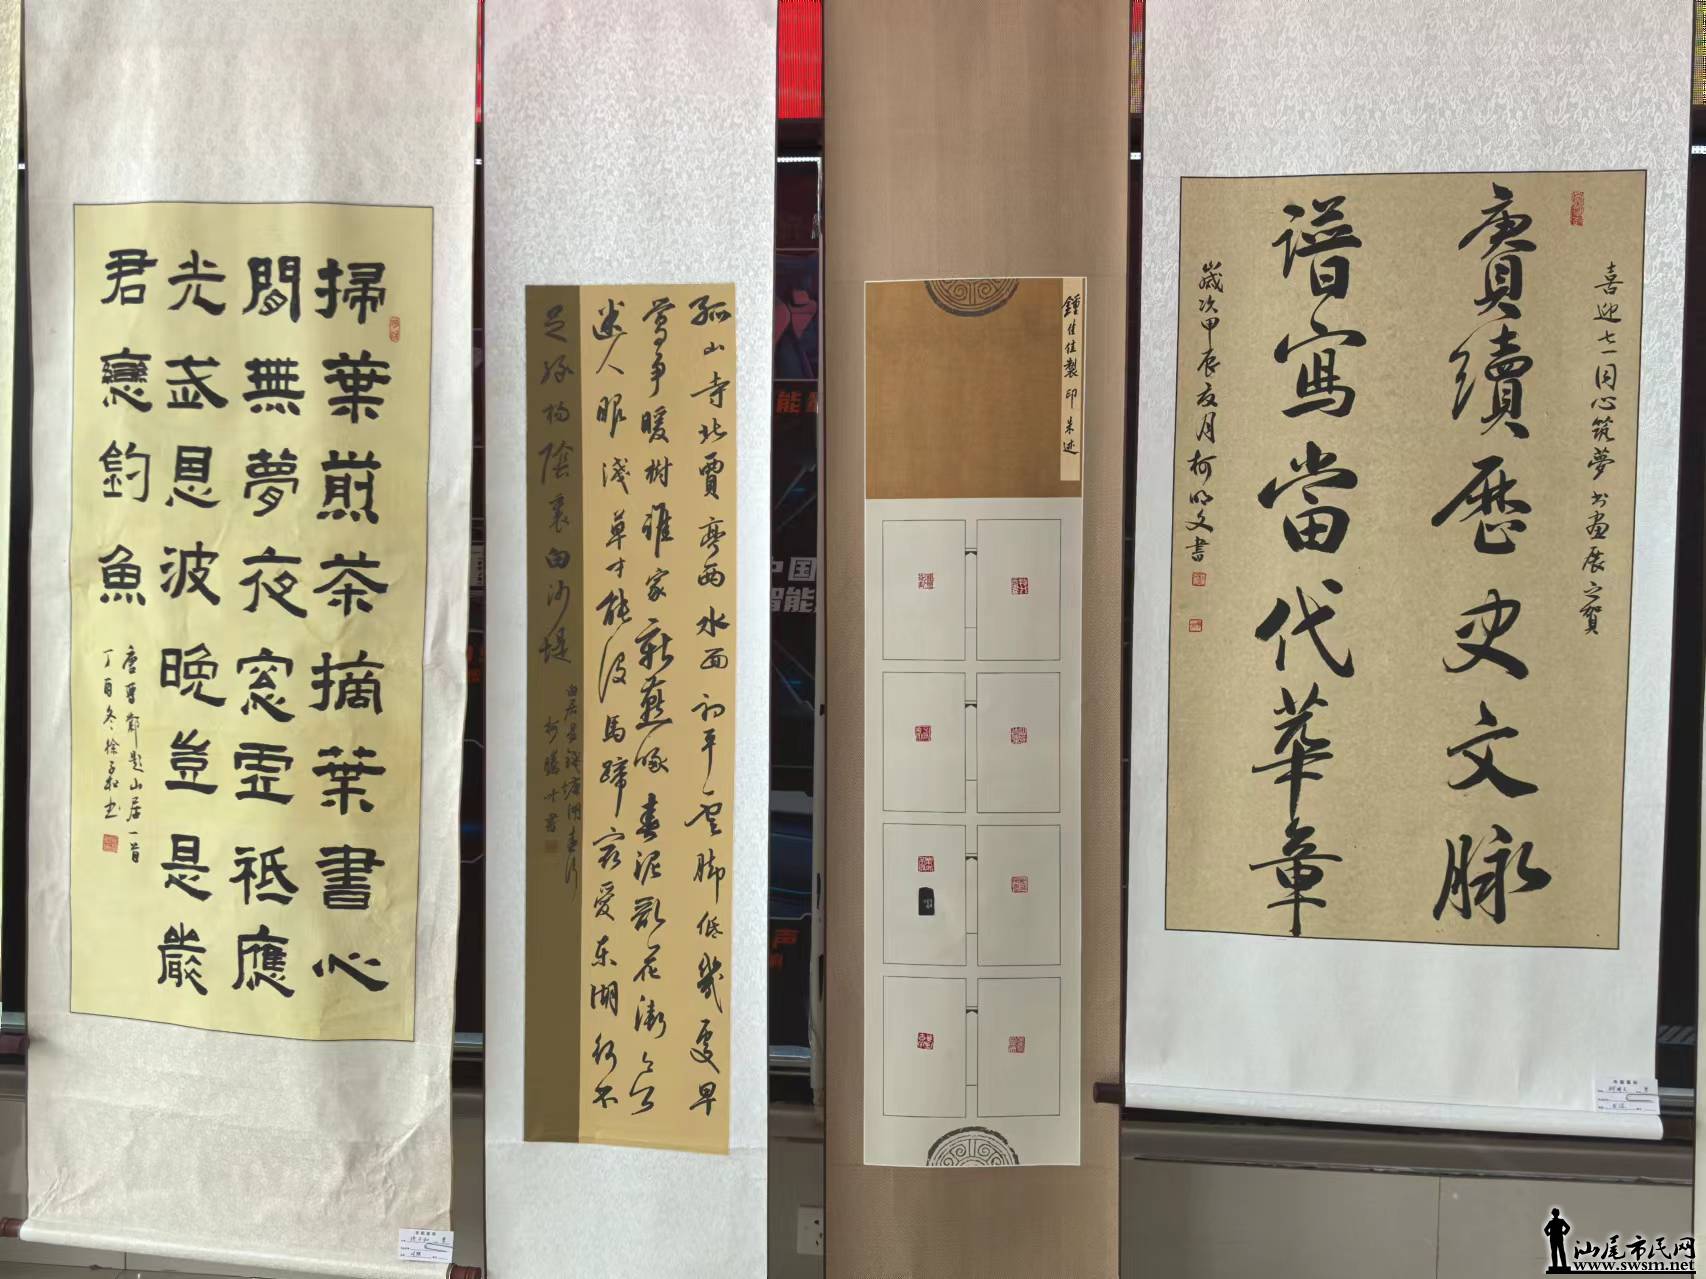 掃葉煎茶摘葉書心
閒無夢夜窓虛祗應
光武恩波晚豈是嚴
君戀釣魚
唐曹鄴題山居一首
丁酉冬徐子和书
孤山寺北賈亭西水面初平雲脚低幾處早
鶯爭暖樹誰家新燕啄春泥亂花漸欲
迷人眼淺草才能没馬蹄最愛东湖行不
足綠楊陰裏白沙堤
白居易錢塘湖春行
鍾佳佳製印朱迹
喜迎七一同心筑夢书画展之賀
賡續歷史文脉
譜寫當代華章
歲次甲辰夏月柯明文書
中国
智能
声
汕尾市民网
www.swsm.net